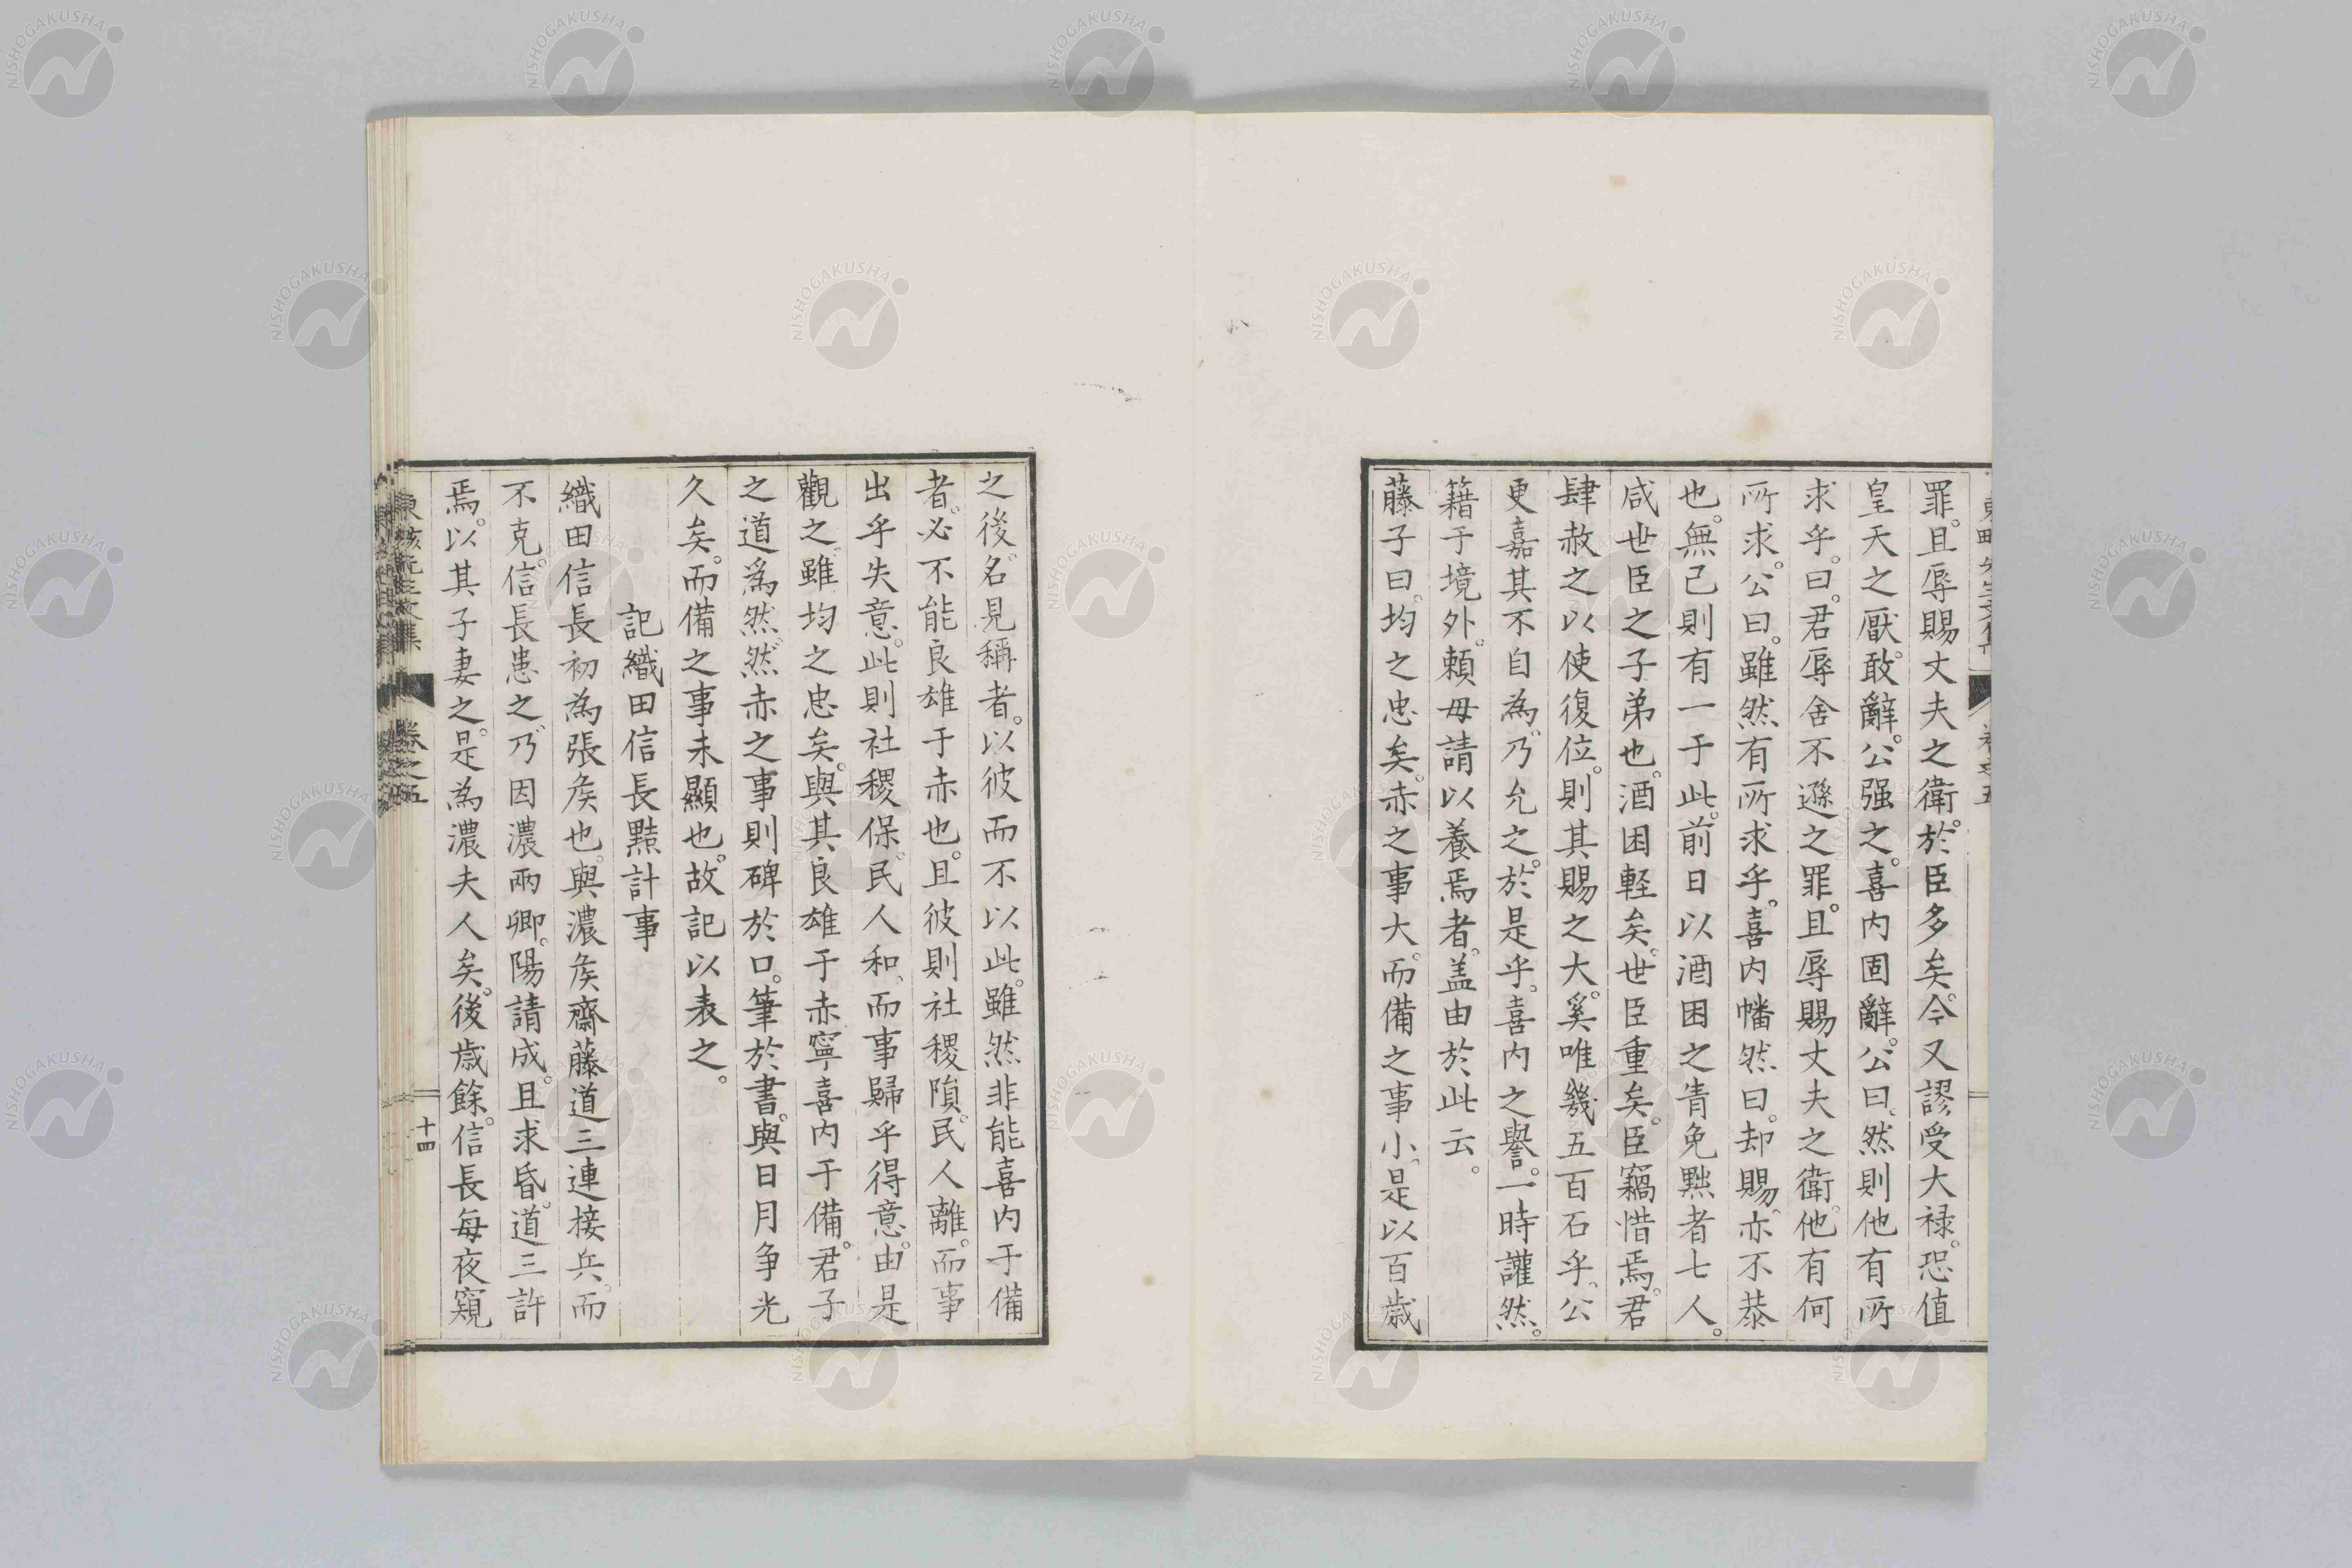 罪。且辱賜丈夫之衛。於臣多矣。今又謬受大禄。恐值
皇天之厭。敢辭。公强之。喜内固辭。公曰、然則他有所
求乎。曰。君辱舍不遜之罪。且辱賜丈夫之衛。他有何
所求。公曰。雖然有所求乎。喜内幡然曰。却賜、亦不恭
也。無已則有一于此。前日以酒困之眚免黜者七人。
咸世臣之子弟也。酒困軽矣。世臣重矣。臣竊惜焉。君
肆赦之以使復位。則其賜之大。奚唯幾五百石乎。公
更嘉其不自為。乃允之。於是乎。喜内之譽。一時讙然。
籍于境外。頼毋請以養焉者。盖由於此云。
藤子曰。均之忠矣。赤之事大。而備之事小。是以百歳
之後。名見稱者。以彼而不以此。雖然非能喜内于備
者。必不能良雄于赤也。且彼則社稷隕。民人離。而事
出乎失意。此則社稷保。民人和、而事歸乎得意。由是
觀之。雖均之忠矣。與其良雄于赤寧喜内于備。君子
之道爲然。然赤之事則碑於口。筆於書。與日月争光
久矣。而備之事未顯也。故記以表之。
記織田信長黠計事
織田信長初為張矦也。與濃矦齋藤道三連接兵。而
不克。信長患之。乃因濃兩卿。陽請成。且求昏。道三許
焉。以其子妻之。是為濃夫人矣。後歳餘。信長每夜窺
卷之五
十四
NISHOGAKUSHA